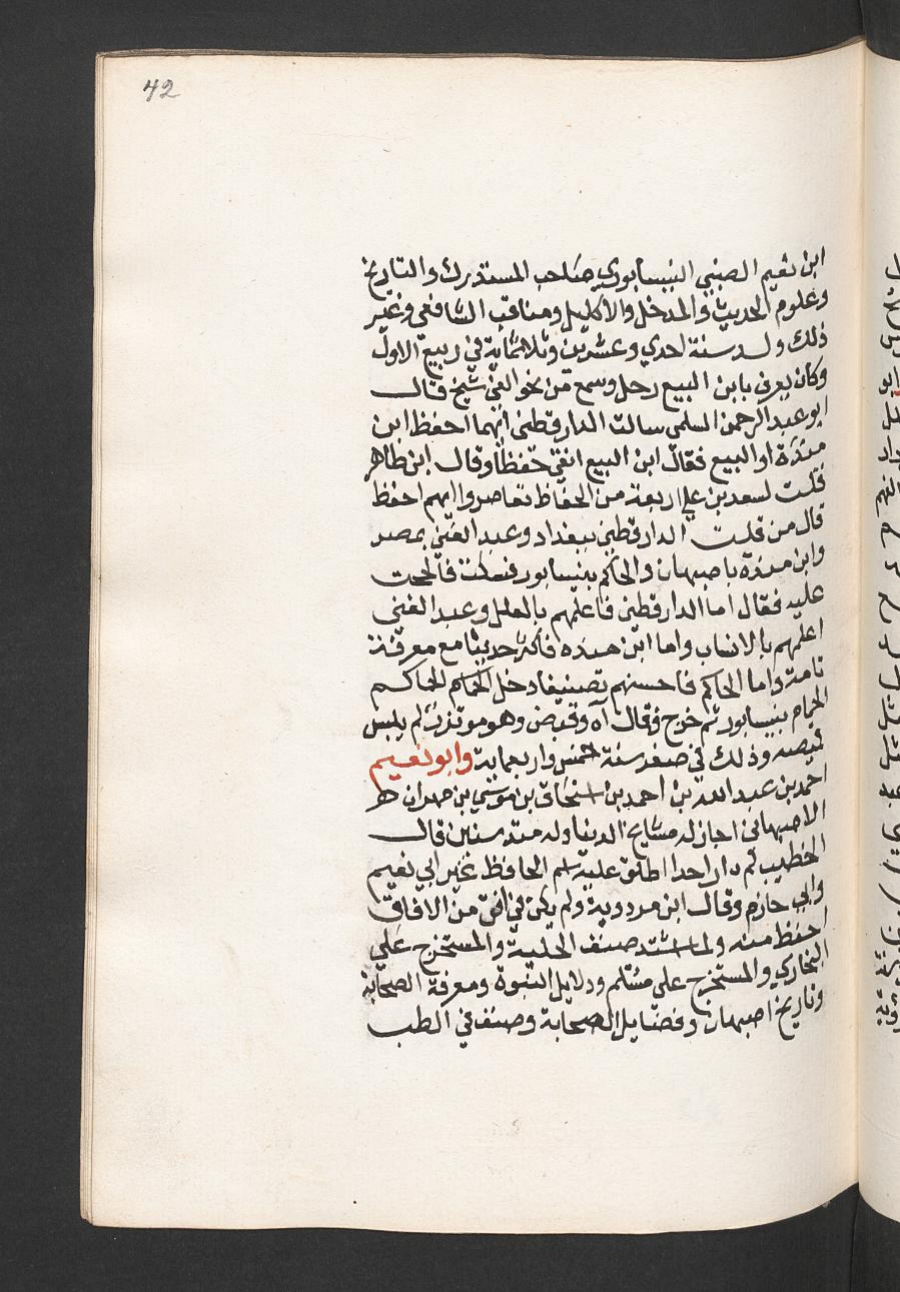 42
ابن نعيم الضبي النيسابوري صاحب المستدرك والتاريخ
وعلوم الحديث والمدخل والاكليل ومناقب الشافعي وغير
ذلك ولد سنة احدي وعشرين وثلاثماية في ربيع الاول
وكان يعرف بابن البيع رحل وسمع من نحو الفي شيخ قال
ابو عبد الرحمن السلمي سالت الدارقطني ايهما احفظ ابن
مندة او البيع فقال ابن البيع اتقي حفظا وقال ابن طاهر
قلت لسعد بن علي اربعة من الحفاظ تعاصروا ايهم احفظ
قال من قلت الدارقطني ببغداد وعبد الغني بمصر
وابن مندة باصبهان والحاكم بنيسابور فسكت فالححت
عليه فقال اما الدارقطني فاعلمهم بالعلل وعبد الغني
اعلمهم بالانساب واما ابن منده فاكثر حديثا مع معرفة
تامة واما الحاكم فاحسنهم تصنيفا دخل الحمام الحاكم
الحمام بنيسابور ثم خرج وقال آه وقبض وهو موتزر لم يلبس
قميصه وذلك في صفر سنة خمس واربعماية وابو نعيم
احمد بن عبد الله بن احمد بن اسحاق بن موسي بن مهران
الاصبهاني اجاز له مشايخ الدنيا وله ست سنين قال
الخطيب لم ار احدا اطلق عليه اسم الحافظ غير ابي نعيم
وابي حازم وقال ابن مردوية ولم يكن في افق من الافاق
احفظ منه ولا اسند صنف الحلية والمستخرج علي
البخاري والمستخرج علي مسلم ودلايل النبوة ومعرفة الصحابة
وتاريخ اصبهان وفضايل الصحابة وصنف في الطب